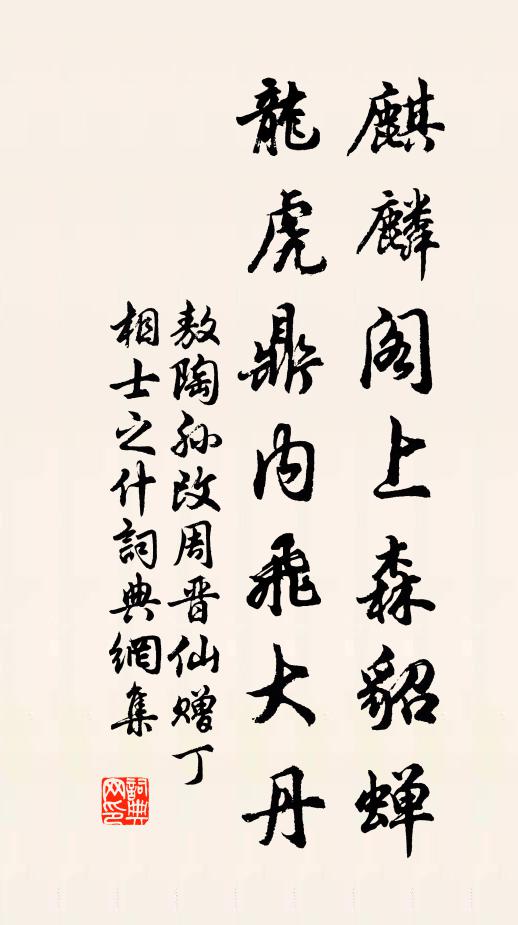 麒麟阁上森貂蝉
龍虎鼎内飛大丹
敖陶孙改周晋仙赠丁
相士之什詞典網集
詞典網印